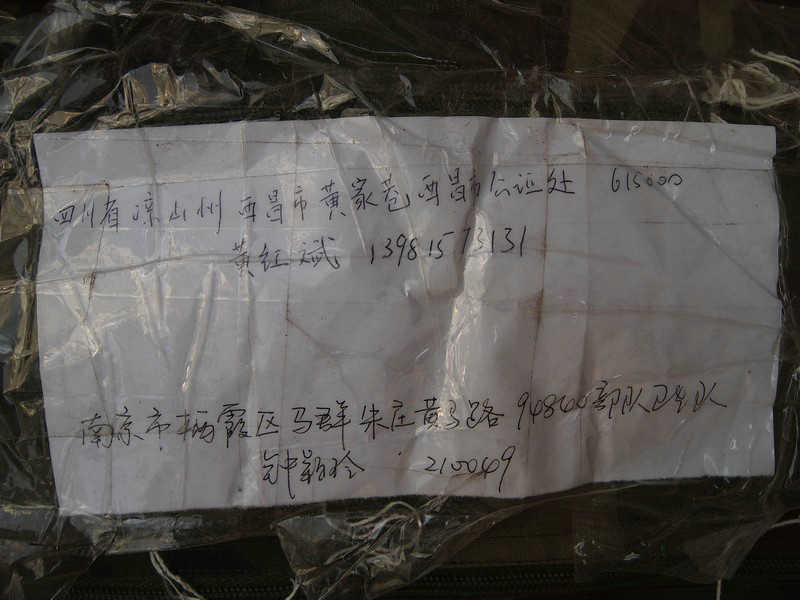 四川省凉山州西昌市黄家巷西昌市公证处 615000
黄红斌 13981573131
南京市栖霞区马群朱庄黄马路 94860部队卫生队
钟颖玲 210049